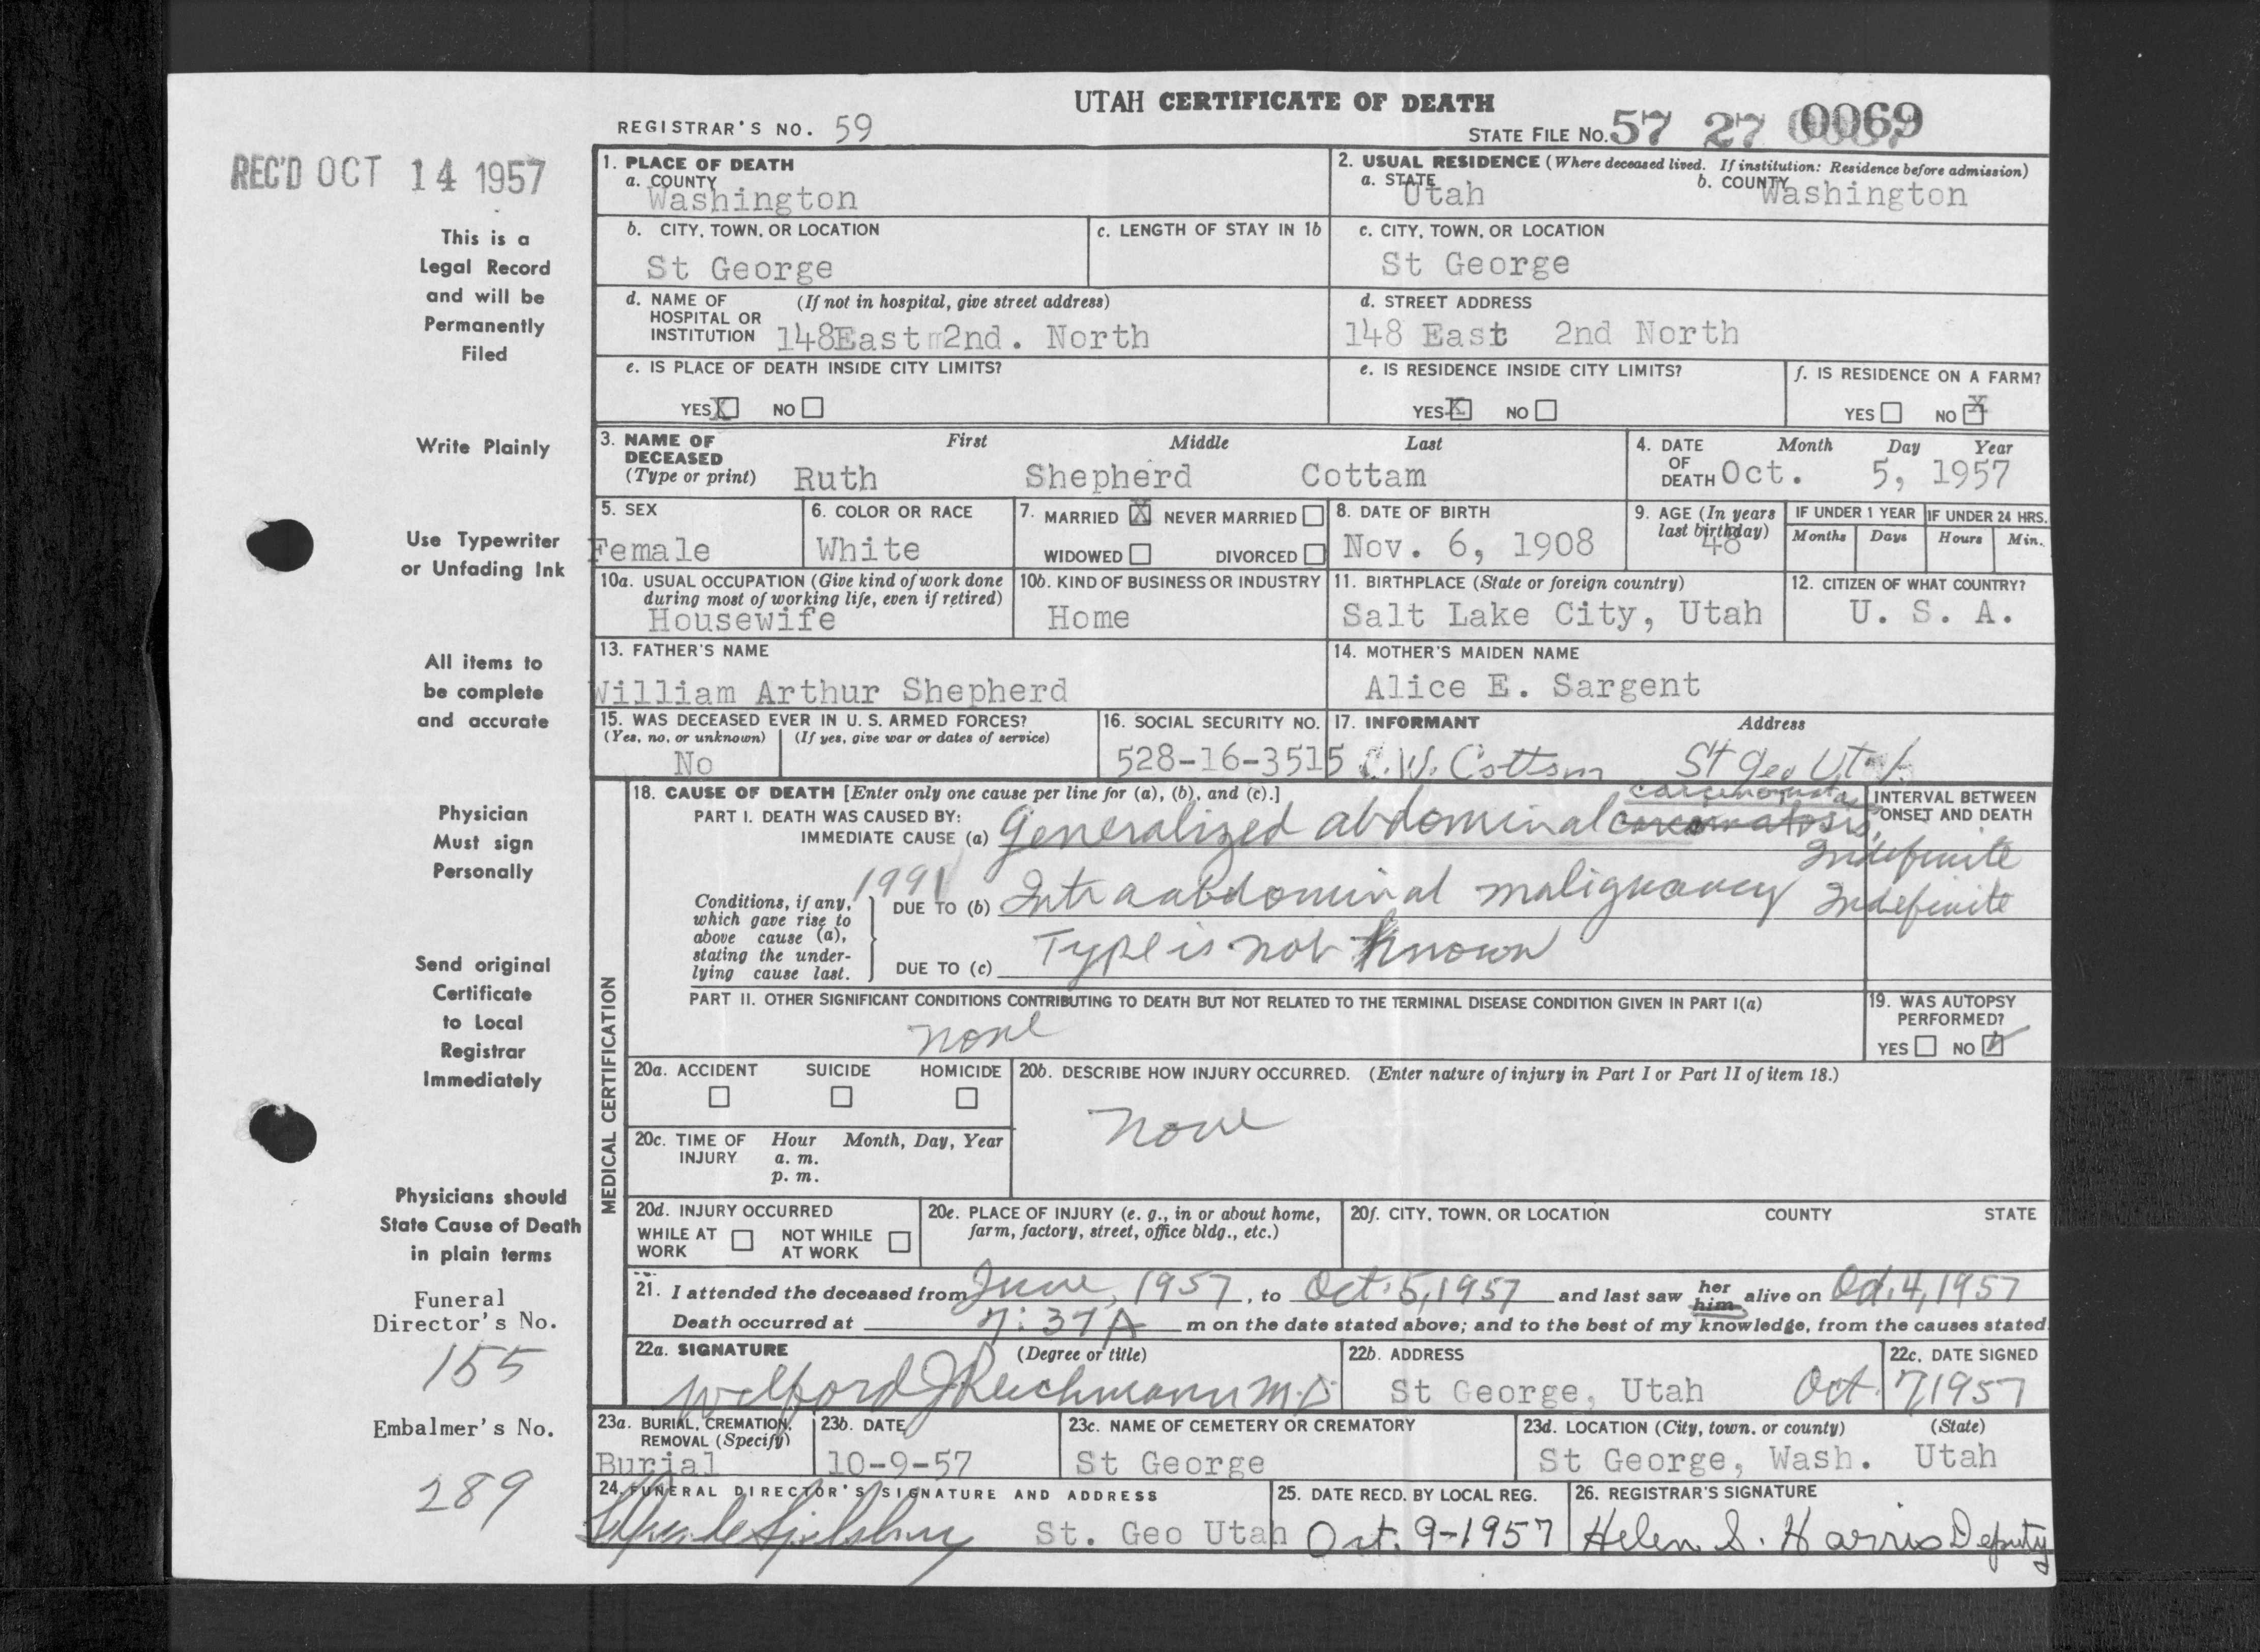 UTAH CERTIFICATE OF DEATH
REGISTRAR'S NO. 59
STATE FILE NO. 57 27 0069
REC'D OCT 14 1957
This is a
Legal Record
and will be
Permanently
Filed
Write Plainly
Use Typewriter
or Unfading Ink
All items to
be complete
and accurate
Physician
Must sign
Personally
Send original
Certificate
to Local
Registrar
Immediately
Physicians should
State Cause of Death
in plain terms
Funeral
Director's No.
155
Embalmer's No.
289
1. PLACE OF DEATH
a. COUNTY
Washington
2. USUAL RESIDENCE (Where deceased lived. If institution: Residence before admission)
a. STATE b. COUNTY
Utah Washington
b. CITY, TOWN, OR LOCATION c. LENGTH OF STAY IN 1b
St George
c. CITY, TOWN, OR LOCATION
St George
d. NAME OF (If not in hospital, give street address)
HOSPITAL OR
INSTITUTION 148East 2nd. North
d. STREET ADDRESS
148 East 2nd North
e. IS PLACE OF DEATH INSIDE CITY LIMITS?
YES X NO
e. IS RESIDENCE INSIDE CITY LIMITS?
YES X NO
f. IS RESIDENCE ON A FARM?
YES NO X
3. NAME OF First Middle Last
DECEASED
(Type or print) Ruth Shepherd Cottam
4. DATE Month Day Year
OF
DEATH Oct. 5, 1957
5. SEX
Female
6. COLOR OR RACE
White
7. MARRIED X NEVER MARRIED
WIDOWED DIVORCED
8. DATE OF BIRTH
Nov. 6, 1908
9. AGE (In years
last birthday)
48
IF UNDER 1 YEAR IF UNDER 24 HRS.
Months Days Hours Min.
10a. USUAL OCCUPATION (Give kind of work done
during most of working life, even if retired)
Housewife
10b. KIND OF BUSINESS OR INDUSTRY
Home
11. BIRTHPLACE (State or foreign country)
Salt Lake City, Utah
12. CITIZEN OF WHAT COUNTRY?
U. S. A.
13. FATHER'S NAME
William Arthur Shepherd
14. MOTHER'S MAIDEN NAME
Alice E. Sargent
15. WAS DECEASED EVER IN U. S. ARMED FORCES?
(Yes, no, or unknown) (If yes, give war or dates of service)
No
16. SOCIAL SECURITY NO.
528-16-3515
17. INFORMANT Address
C. W. Cottam St Geo Utah
MEDICAL CERTIFICATION
18. CAUSE OF DEATH [Enter only one cause per line for (a), (b), and (c).]
INTERVAL BETWEEN
ONSET AND DEATH
PART I. DEATH WAS CAUSED BY:
IMMEDIATE CAUSE (a) Generalized abdominal
Indefinite
1991
Conditions, if any,
which gave rise to
above cause (a),
stating the under-
lying cause last.
DUE TO (b) Intraabdominal malignancy Indefinite
Type is not known
DUE TO (c)
PART II. OTHER SIGNIFICANT CONDITIONS CONTRIBUTING TO DEATH BUT NOT RELATED TO THE TERMINAL DISEASE CONDITION GIVEN IN PART I(a)
none
19. WAS AUTOPSY
PERFORMED?
YES NO
20a. ACCIDENT SUICIDE HOMICIDE
20b. DESCRIBE HOW INJURY OCCURRED. (Enter nature of injury in Part I or Part II of item 18.)
none
20c. TIME OF Hour Month, Day, Year
INJURY a. m.
p. m.
20d. INJURY OCCURRED
WHILE AT NOT WHILE
WORK AT WORK
20e. PLACE OF INJURY (e. g., in or about home,
farm, factory, street, office bldg., etc.)
20f. CITY, TOWN, OR LOCATION COUNTY STATE
21. I attended the deceased from June, 1957, to Oct. 5, 1957 and last saw her him alive on Oct. 4, 1957
Death occurred at 7:37 A m on the date stated above; and to the best of my knowledge, from the causes stated
22a. SIGNATURE (Degree or title)
Wilford J Reichmann M.D.
22b. ADDRESS
St George, Utah
22c. DATE SIGNED
Oct. 7, 1957
23a. BURIAL, CREMATION,
REMOVAL (Specify)
Burial
23b. DATE
10-9-57
23c. NAME OF CEMETERY OR CREMATORY
St George
23d. LOCATION (City, town, or county) (State)
St George, Wash. Utah
24. FUNERAL DIRECTOR'S SIGNATURE AND ADDRESS
Spilsbury St. Geo Utah
25. DATE RECD. BY LOCAL REG.
Oct. 9-1957
26. REGISTRAR'S SIGNATURE
Helen S. Harris Deputy